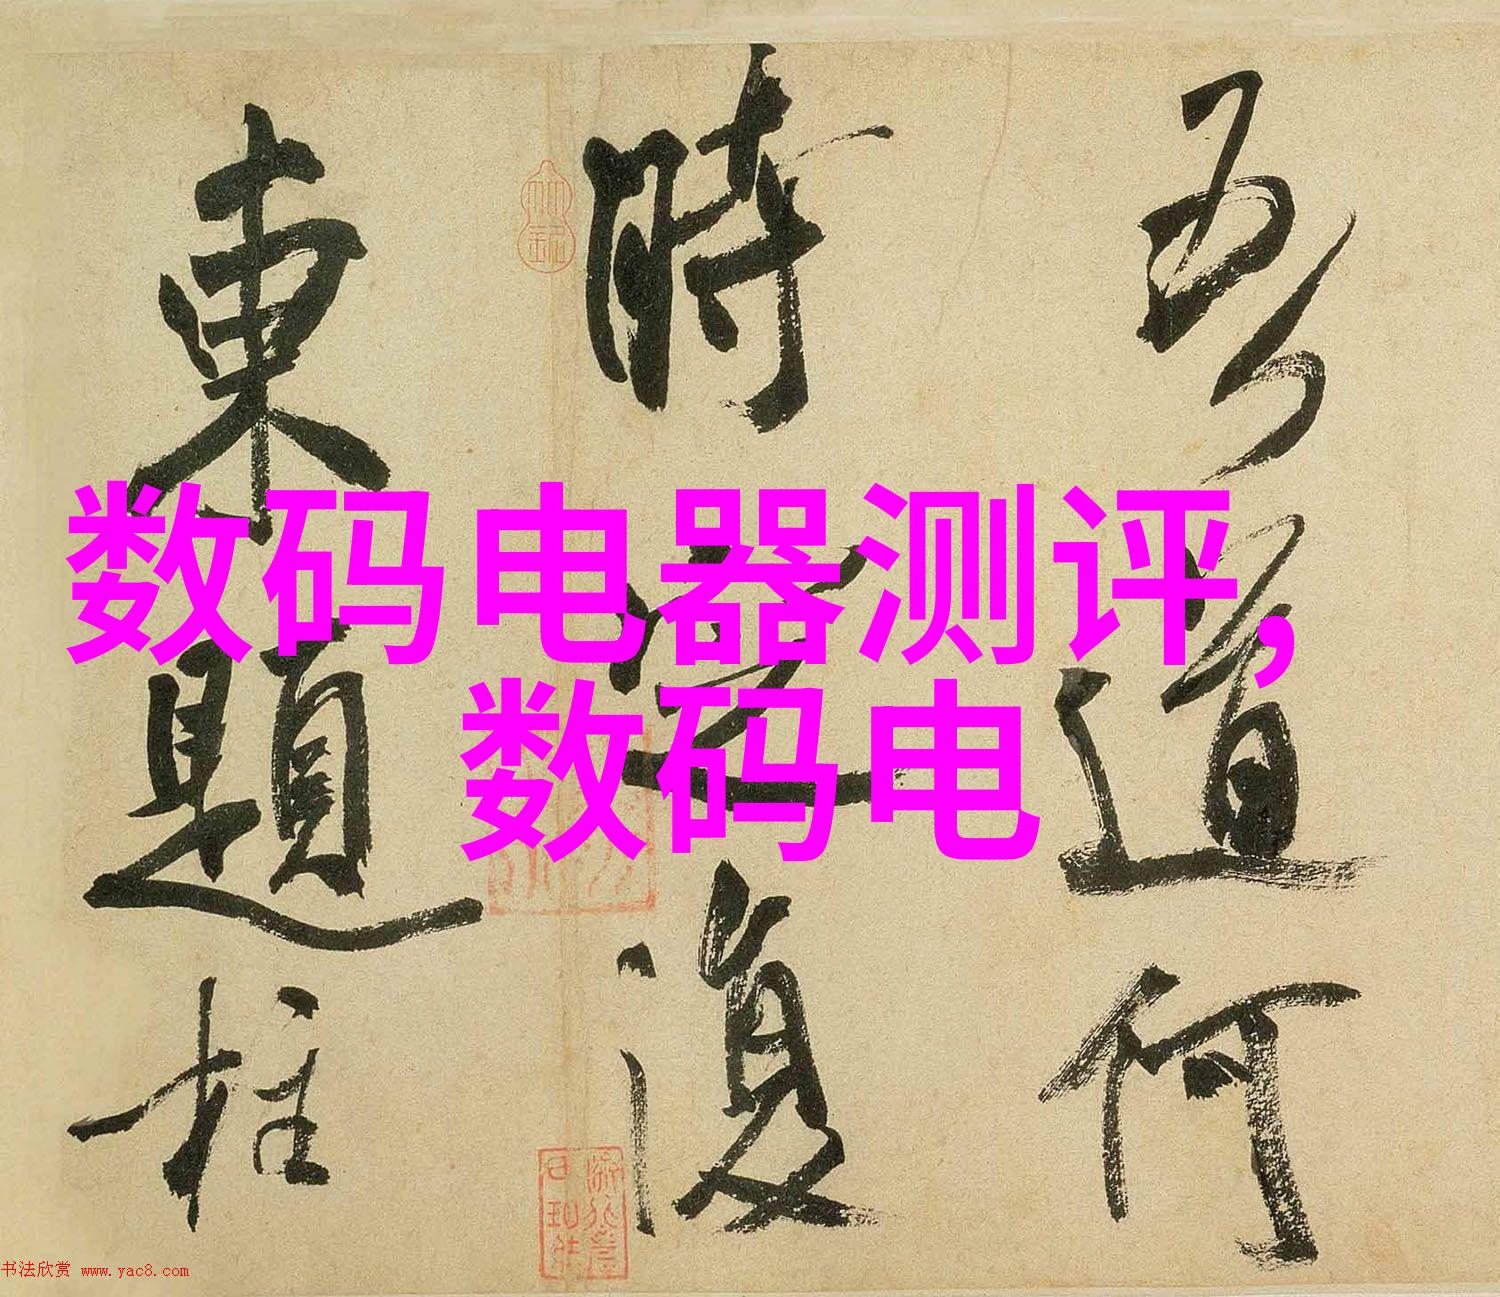 吾道何
時定復
東題柱
数码电器测评,
数码电
书法欣赏 www.yac8.com